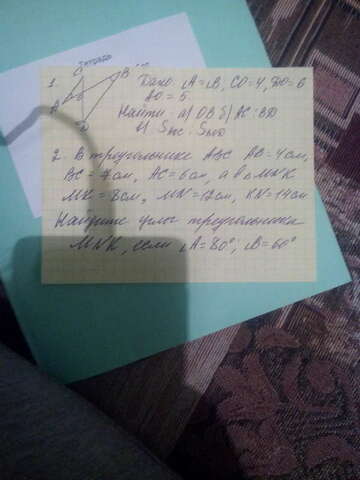 тетрадь
1. Дано: ∠A = ∠B, CO = 4, DO = 6
AO = 5
Найти: а) OB б) AC : BD
в) S AOC : S BOD
C
B
A
O
D
2. В треугольнике ABC AB = 4 см,
BC = 7 см, AC = 6 см, а в ∆ MNK
MK = 8 см, MN = 12 см, KN = 14 см
Найдите углы треугольника
MNK, если ∠A = 80°, ∠B = 60°